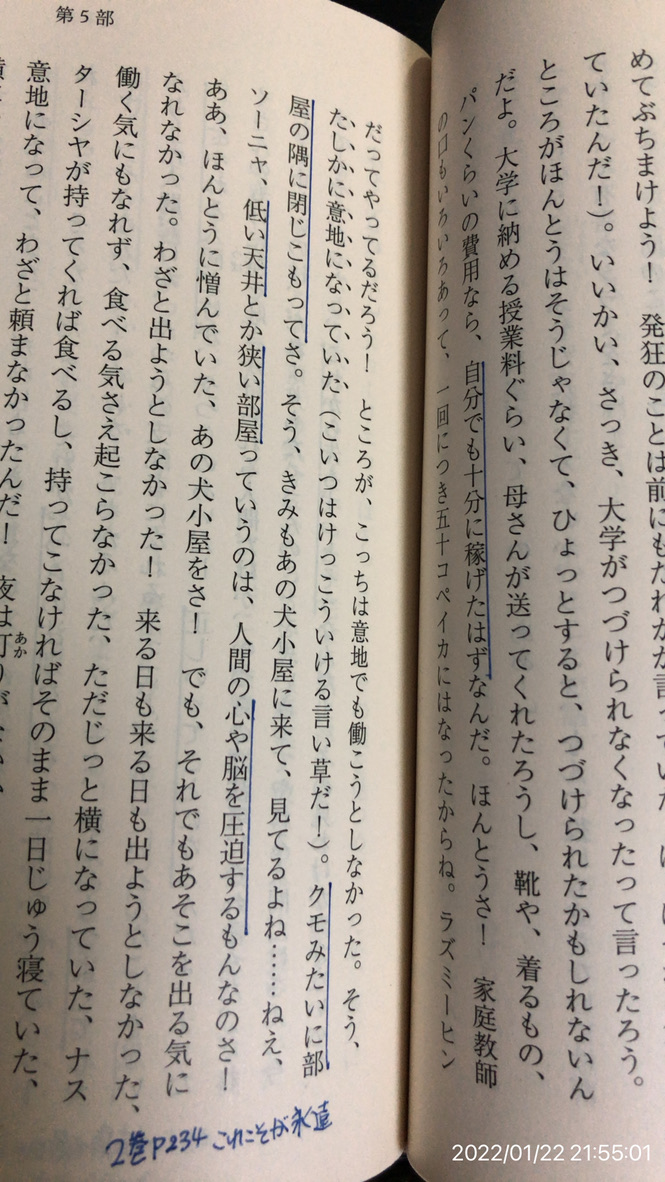 めてぶちまけよう！　発狂のことは前にもだれかが言っていた
ていたんだ！）。いいかい、さっき、大学がつづけられなくなったって言ったろう。
ところがほんとうはそうじゃなくて、ひょっとすると、つづけられたかもしれないん
だよ。大学に納める授業料ぐらい、母さんが送ってくれたろうし、靴や、着るもの、
パンくらいの費用なら、自分でも十分に稼げたはずなんだ。ほんとうさ！　家庭教師
の口もいろいろあって、一回につき五十コペイカにはなったからね。ラズミーヒン
第5部
だってやってるだろう！　ところが、こっちは意地でも働こうとしなかった。そう、
たしかに意地になっていた（こいつはけっこういける言い草だ！）。クモみたいに部
屋の隅に閉じこもってさ。そう、きみもあの犬小屋に来て、見てるよね……ねえ、
ソーニャ、低い天井とか狭い部屋っていうのは、人間の心や脳を圧迫するもんなのさ！
ああ、ほんとうに憎んでいた、あの犬小屋をさ！　でも、それでもあそこを出る気に
なれなかった。わざと出ようとしなかった！　来る日も来る日も出ようとしなかった、
働く気にもなれず、食べる気さえ起こらなかった、ただじっと横になっていた、ナス
ターシヤが持ってくれば食べるし、持ってこなければそのまま一日じゅう寝ていた、
意地になって、わざと頼まなかったんだ！夜は灯りが
あか
2巻P234 これこそが永遠
2022/01/22 21:55:01